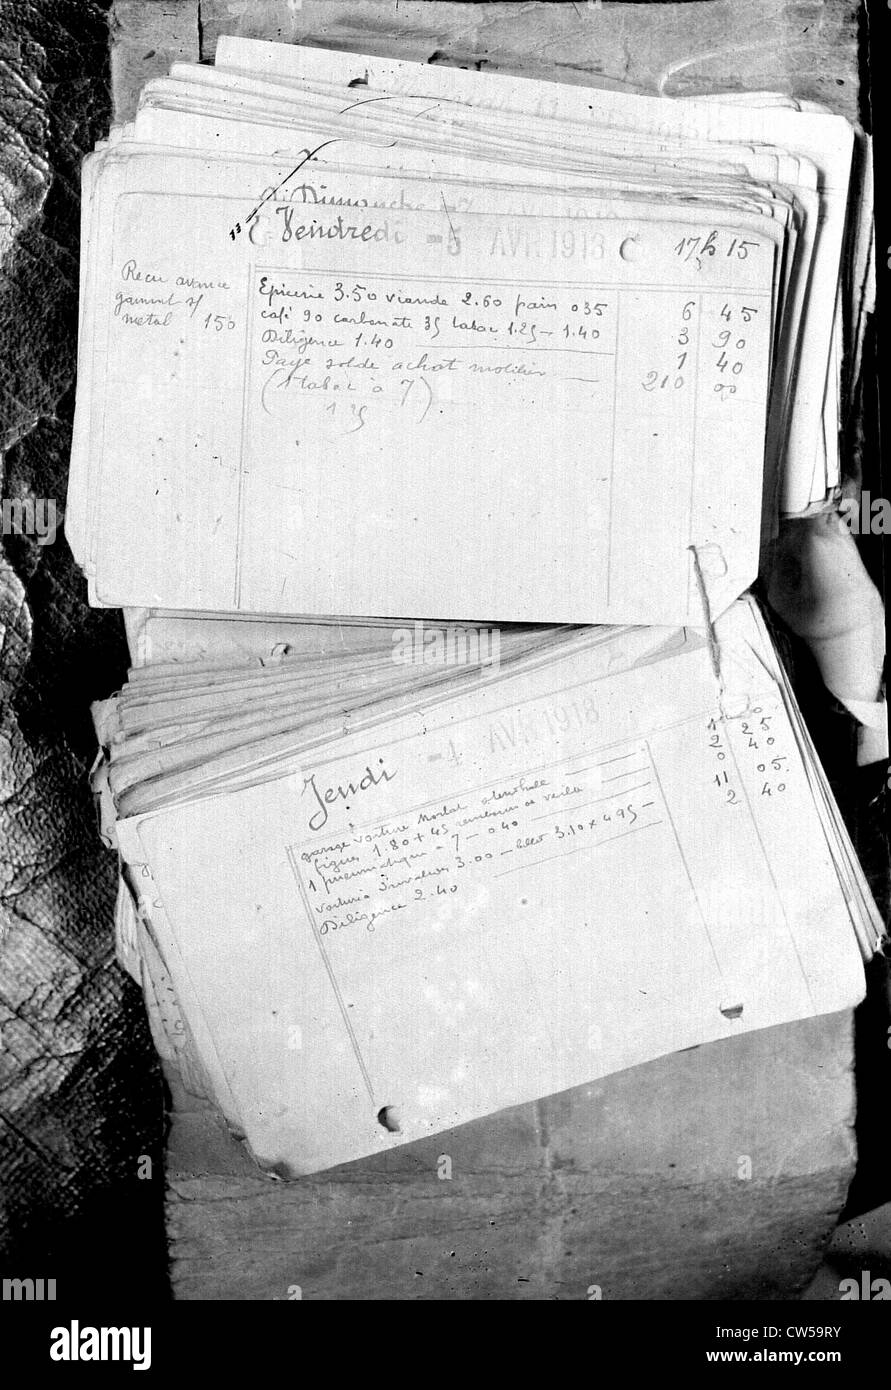 Dimanche
Vendredi - 5 AVR 1918 C 17h15
Recu avance
gammt s/
metal 150
Epicerie 3.50 viande 2.60 pain 035 6 45
café 90 carbonate 35 tabac 1.25 - 1.40 3 90
Diligence 1.40 1 40
Paye solde achat mobilier 210 00
(1 tabac à 7)
1 25
Jeudi - 4 AVR 1918
garage voiture 1 25
figues 1.80 + 45 2 40
1 pneumatique à 7 - 0 40 0
voiture Invalides 3.00 - billet 3.10 x 4.95 - 11 05
Diligence 2.40 2 40
alamy
Image ID: CW59RY
www.alamy.com